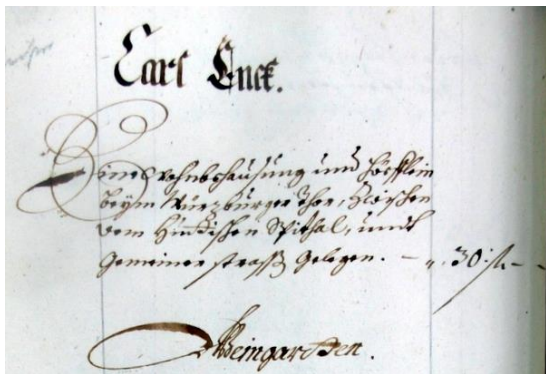 Carl Enck.
Eine wohnbehausung und höfflein
beym Würzburger Thor, Zwischen
dem Hundischen Spithal, undt
Gemeiner strass Gelegen. — 30 fl. —
Weingardten.